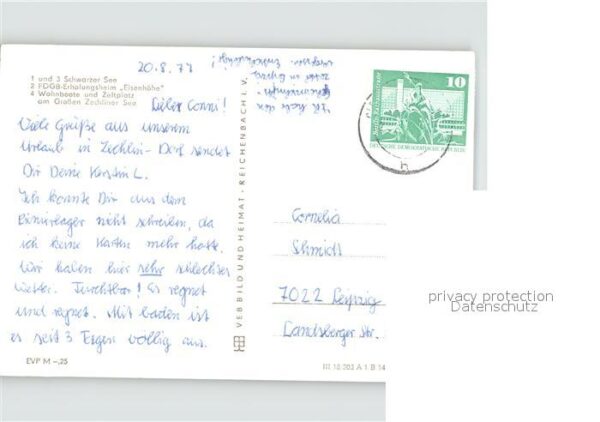 1 und 3 Schwarzer See
2 FDGB-Erholungsheim „Eisenhöhe"
4 Wohnboote und Zeltplatz
am Großen Zechliner See
20.8.77
Liebe Conni!
Viele Grüße aus unserem
Urlaub in Zechlin-Dorf sendet
Dir Deine Kerstin L.
Ich konnte Dir aus dem
nicht schreiben, da
ich keine Karten mehr hatte.
Wir haben hier sehr schlechtes
Wetter. Furchtbar! Es regnet
und regnet. Mit baden ist
es seit 3 Tagen völlig aus.
EVP M -,25
VEB BILD UND HEIMAT · REICHENBACH I. V.
Ich habe den
zettel in
vergessen. Entschuldige!
10
DEUTSCHE DEMOKRATISCHE REPUBLIK
Cornelia
Schmidt
7022 Leipzig
Landsberger Str.
III 18 203 A 1 B 14
privacy protection
Datenschutz